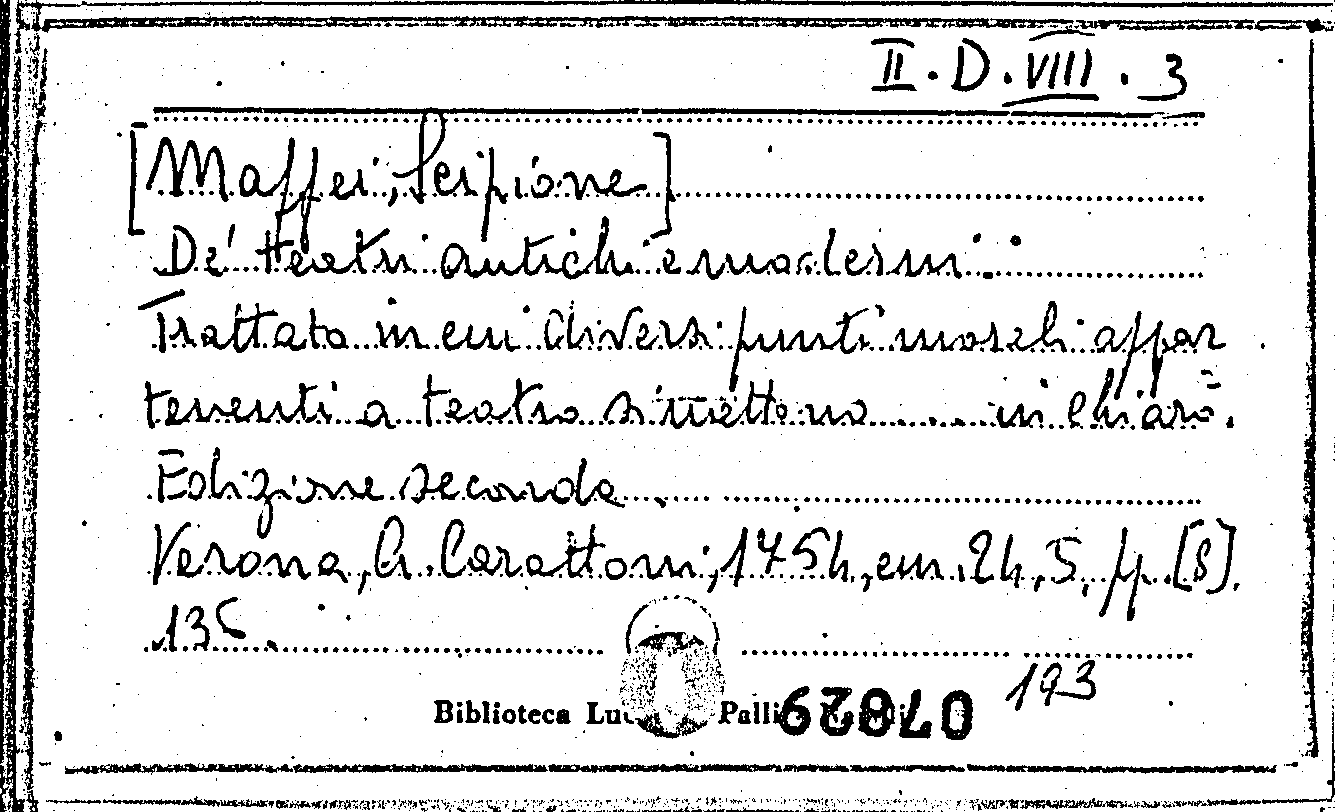 II. D. VIII. 3
[Maffei, Scipione]
De' teatri antichi e moderni.
Trattato in cui diversi punti morali appar
tenenti a teatro si mettono .... in chiaro.
Edizione seconda.
Verona, A. Carattoni, 1754, cm. 24, 5, pp. [8].
135.
193
Biblioteca Palli
07829